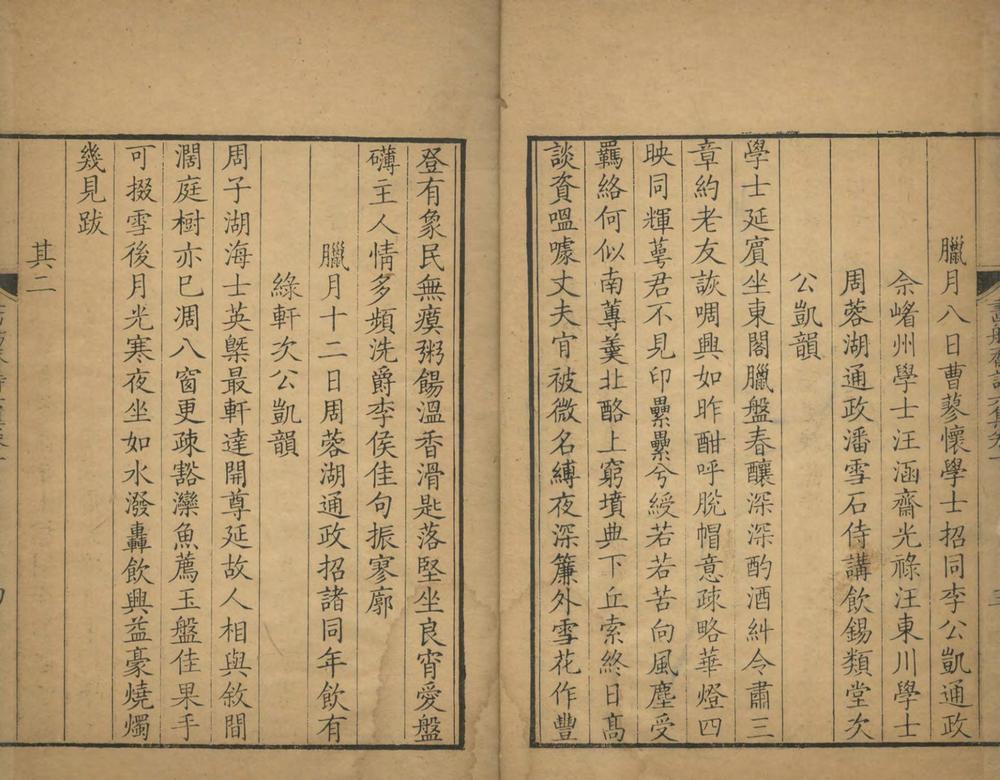 臘月八日曹蓼懷學士招同李公凱通政
佘嵴州學士汪涵齋光祿汪東川學士
周蓉湖通政潘雪石侍講飲錫類堂次
公凱韻
學士延賓坐東閣臘盤春釀深深酌酒糾令肅三
章約老友詼啁興如昨酣呼脫帽意疎略華燈四
映同輝萼君不見印纍纍兮綬若若苦向風塵受
羈絡何似南蓴羹北酪上窮墳典下丘索終日高
談資嗢噱丈夫肎被微名縛夜深簾外雪花作豐
登有象民無瘼粥餳溫香滑匙落堅坐良宵愛盤
礴主人情多頻洗爵李侯佳句振寥廓
臘月十二日周蓉湖通政招諸同年飲有
綠軒次公凱韻
周子湖海士英槩最軒達開尊延故人相與敘間
濶庭樹亦已凋八窗更疎豁灤魚薦玉盤佳果手
可掇雪後月光寒夜坐如水潑轟飲興益豪燒燭
幾見跋
其二